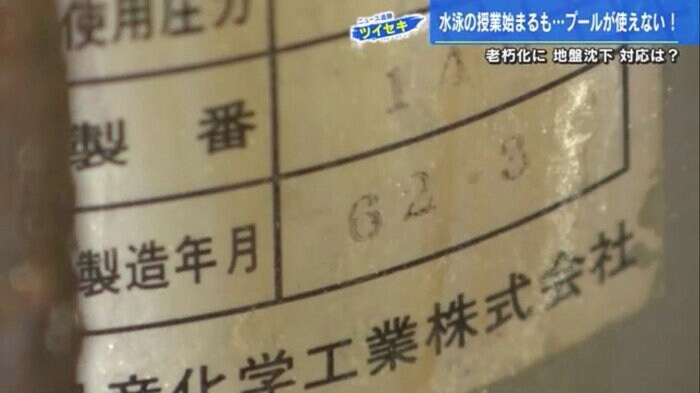 ニュース追跡
ツイセキ
水泳の授業始まるも…プールが使えない！
老朽化に 地盤沈下 対応は？
使用圧力
製番 1
製造年月 62-3
産化学工業株式会社